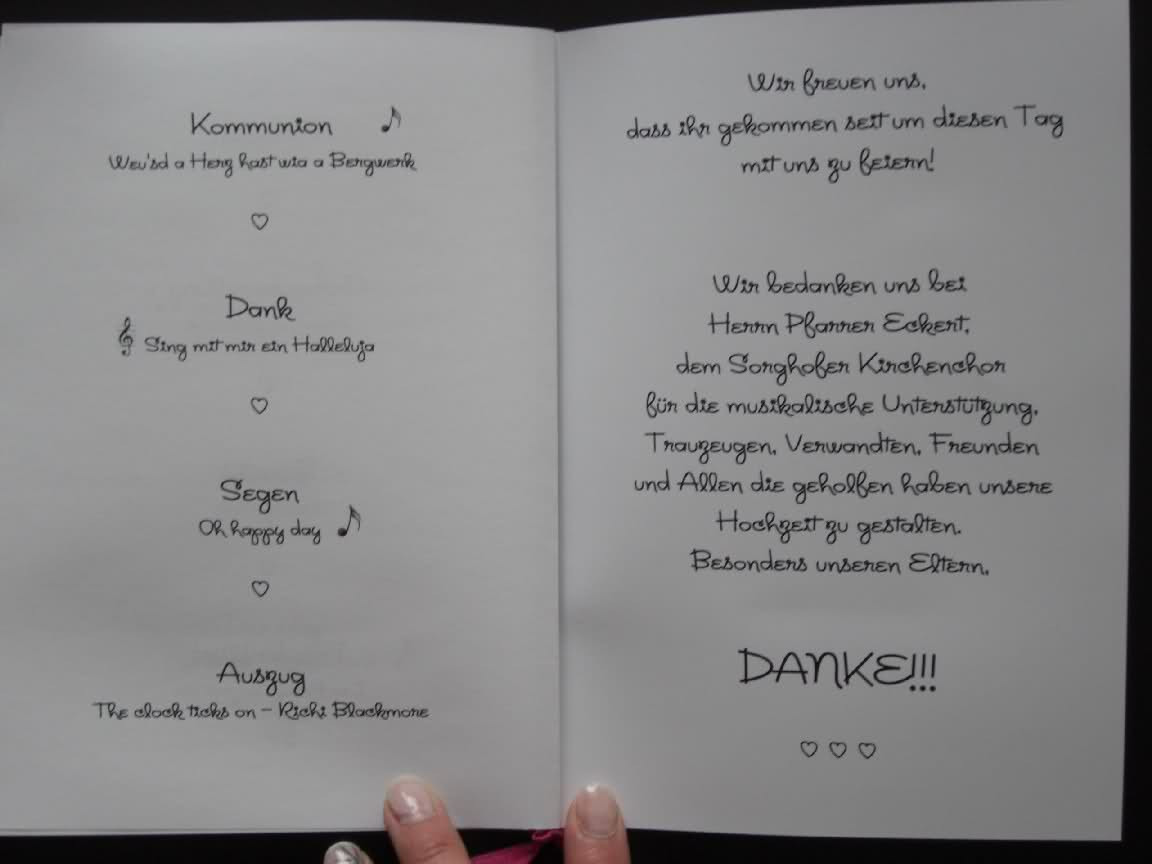 Kommunion
Weu'sd a Herz hast wia a Bergwerk
Dank
Sing mit mir ein Halleluja
Segen
Oh happy day
Auszug
The clock ticks on - Richi Blackmore
Wir freuen uns,
dass ihr gekommen seit um diesen Tag
mit uns zu feiern!
Wir bedanken uns bei
Herrn Pfarrer Eckert,
dem Sorghofer Kirchenchor
für die musikalische Unterstützung,
Trauzeugen, Verwandten, Freunden
und Allen die geholfen haben unsere
Hochzeit zu gestalten.
Besonders unseren Eltern,
DANKE!!!